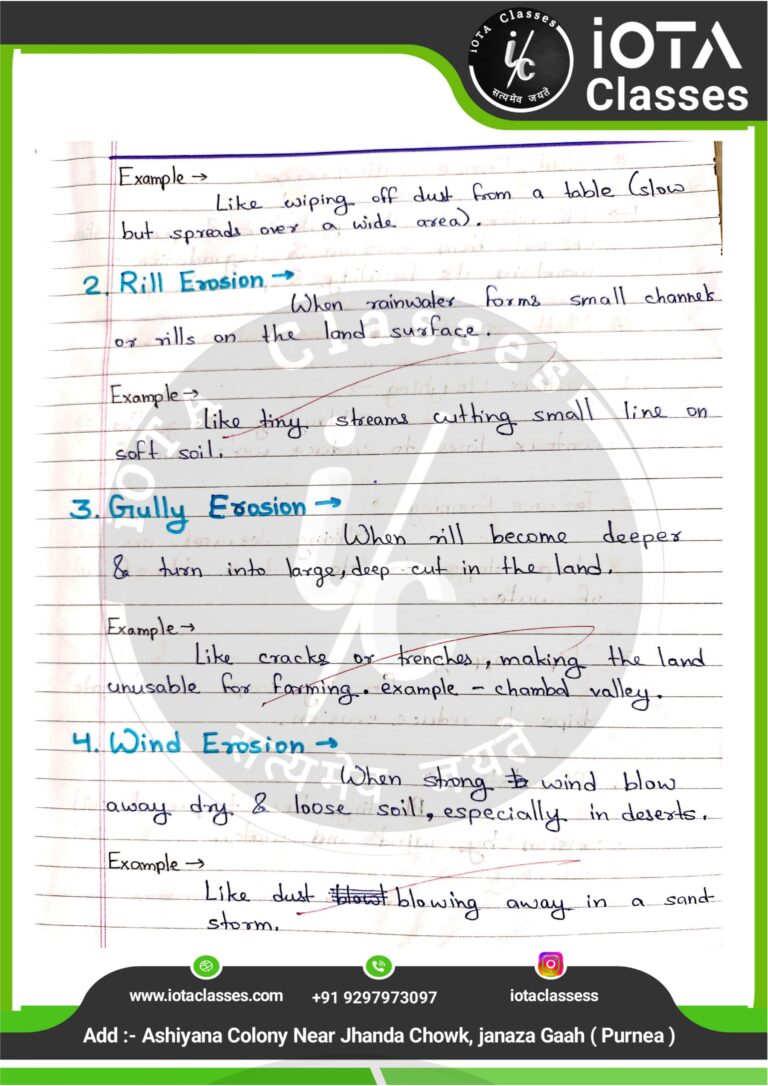 iOTA Classes
iC
सत्यमेव जयते
iOTA
Classes
Example →
Like wiping off dust from a table (slow
but spreads over a wide area).
2. Rill Erosion →
When rainwater forms small channels
or rills on the land surface.
Example →
Like tiny streams cutting small line on
soft soil.
3. Gully Erosion →
When rill become deeper
& turn into large, deep cut in the land.
Example →
Like cracks or trenches, making the land
unusable for farming. example - chambal valley.
4. Wind Erosion →
When strong wind blow
away dry & loose soill, especially in deserts.
Example →
Like dust blowing away in a sand
storm.
iOTA Classes
iC
सत्यमेव जयते
www.iotaclasses.com
+91 9297973097
iotaclassess
Add :- Ashiyana Colony Near Jhanda Chowk, janaza Gaah ( Purnea )